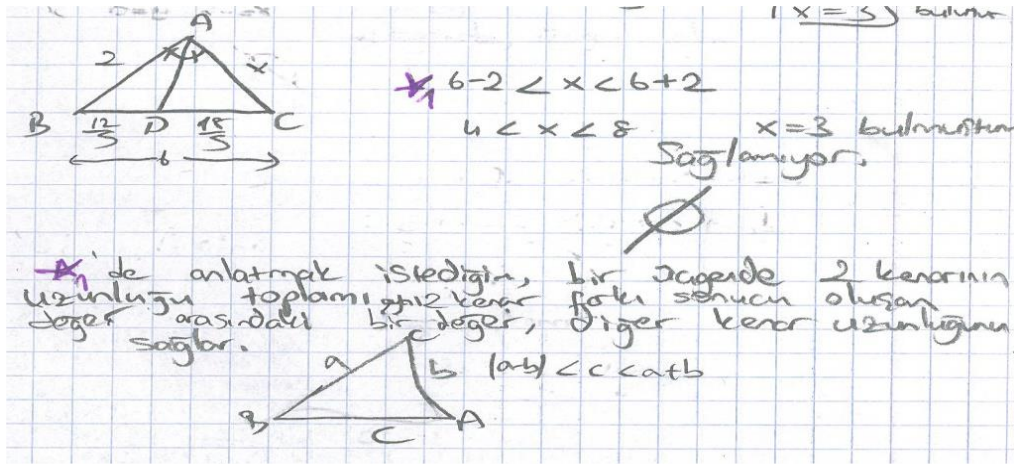 x = 3 bulunur
A
2
x
x x
B 12/5 D 18/5 C
6
*1 6-2 < x < 6+2
4 < x < 8 x=3 bulmuştum
Sağlamıyor.
∅
*1'de anlatmak istediğim, bir üçgende 2 kenarının
uzunluğu toplamı kenar farkı sonucu oluşan
değer arasındaki bir değer, diğer kenar uzunluğunu
sağlar.
C
a
b |a-b| < c < a+b
B A
C